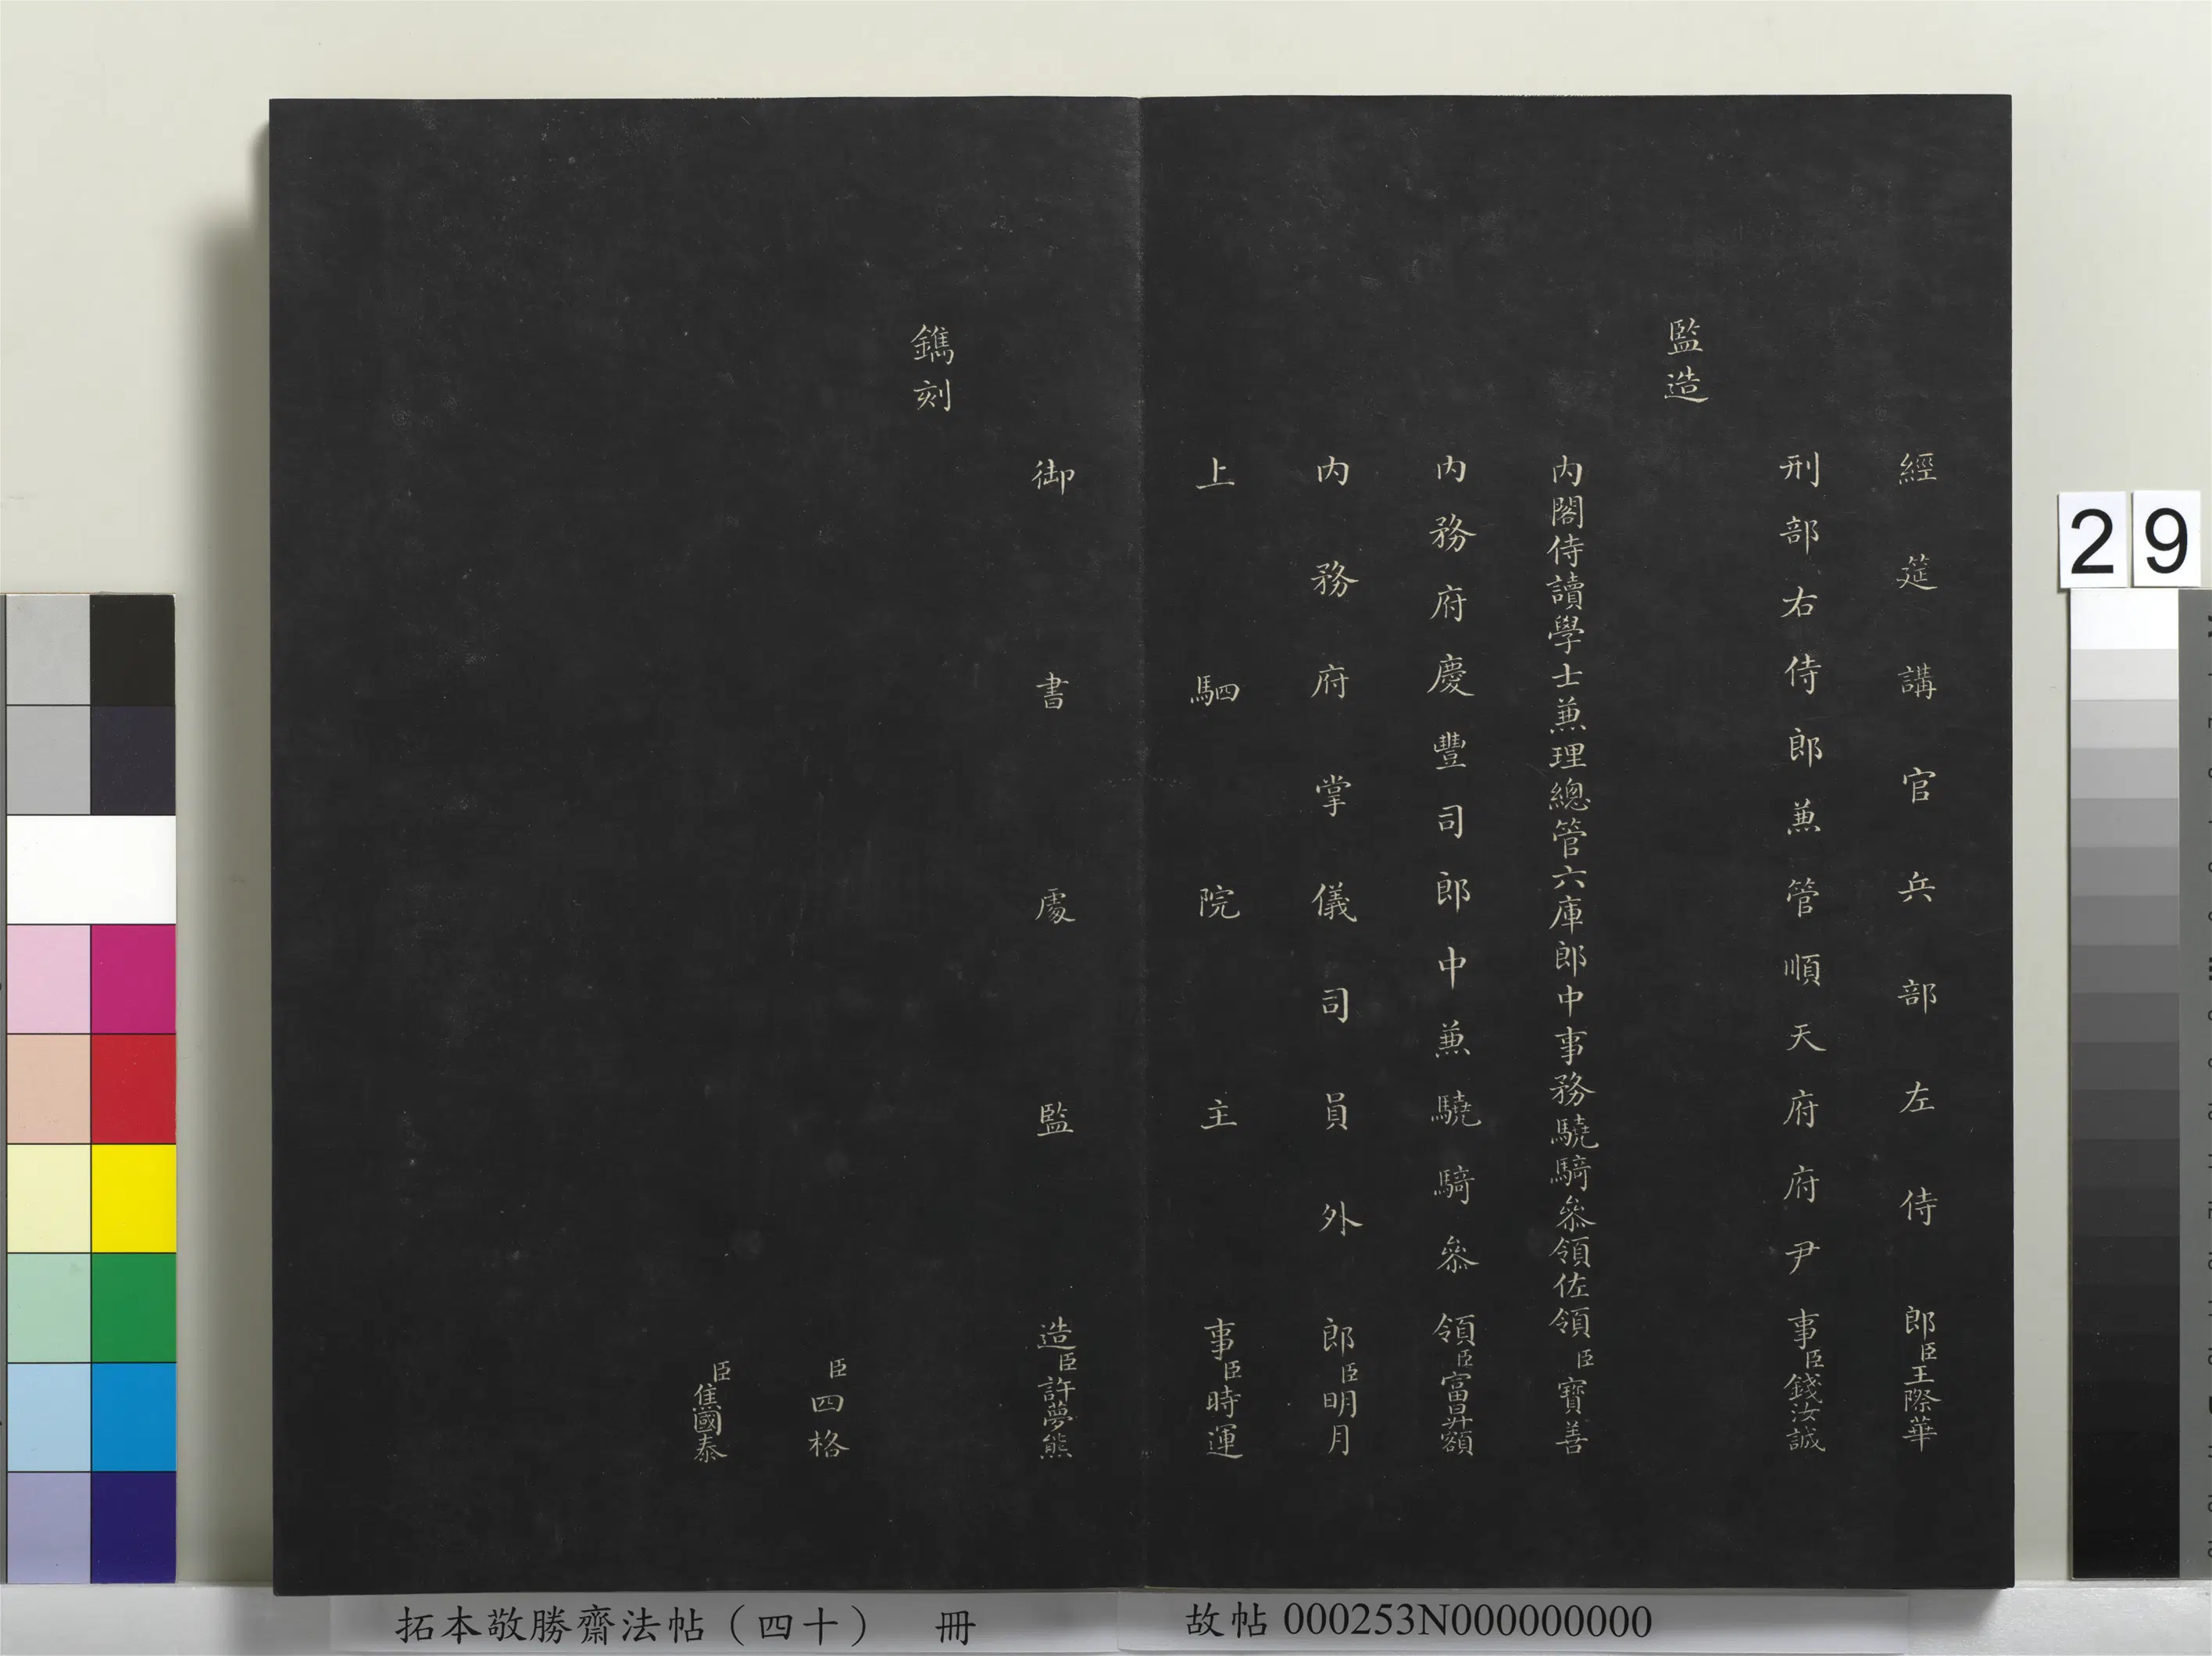 經筵講官兵部左侍郎臣王際華
刑部右侍郎兼管順天府府尹事臣錢汝誠
監造
內閣侍讀學士兼理總管六庫郎中事務驍騎叅領佐領臣寶善
內務府慶豐司郎中兼驍騎叅領臣富昇額
內務府掌儀司員外郎臣明月
上駟院主事臣時運
御書處監造臣許夢熊
鐫刻
臣四格
臣焦國泰
29
拓本敬勝齋法帖（四十） 冊
故帖 000253N000000000